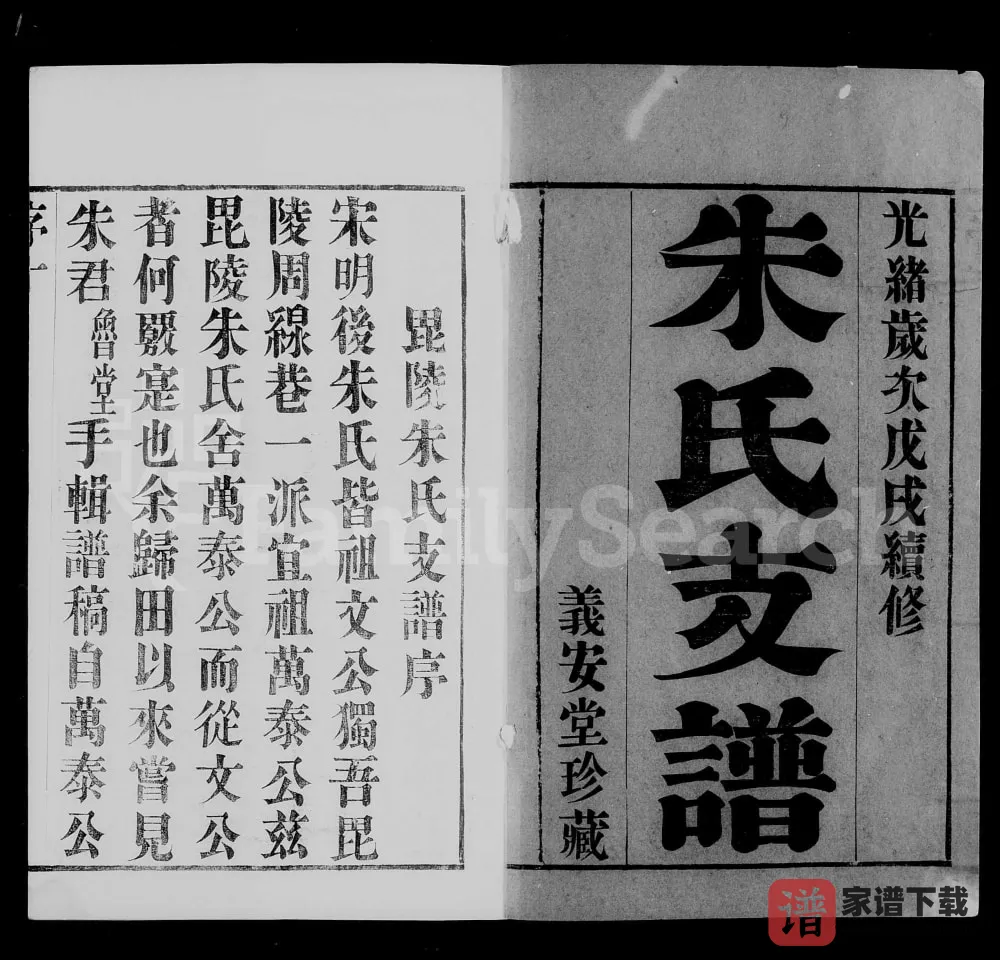 光緒歲次戊戌續修
朱氏支譜
義安堂珍藏
毘陵朱氏支譜序
宋明後朱氏皆祖文公獨吾毘
陵周線巷一派宜祖萬泰公茲
毘陵朱氏舍萬泰公而從文公
者何歟寔也余歸田以來嘗見
朱君魯堂手輯譜稿自萬泰公
序一
FamilySearch
谱
家谱下载